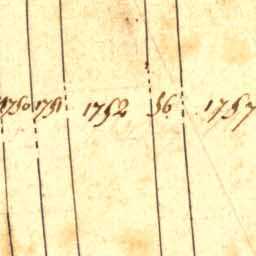 1750 1751 1752 56 1757